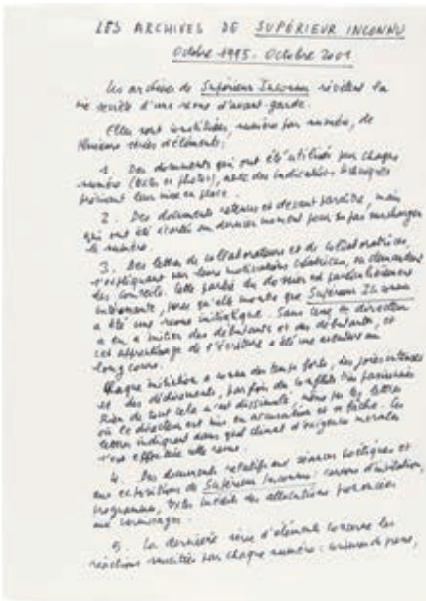 LES ARCHIVES DE SUPÉRIEUR INCONNU
Octobre 1995 - Octobre 2001
Les archives de Supérieur Inconnu révèlent la
vie secrète d'une revue d'avant-garde.
Elles sont constituées, numéro par numéro, de
plusieurs séries d'éléments :
1. Des documents qui ont été utilisés pour chaque
numéro (textes et photos), avec des indications techniques
prévoyant leur mise en place.
2. Des documents retenus et devant paraître, mais
qui ont été écartés au dernier moment pour ne pas surcharger
le numéro.
3. Des lettres de collaborateurs et de collaboratrices,
s'expliquant sur leurs motivations créatrices, ou demandant
des conseils. Cette partie du dossier est particulièrement
intéressante, parce qu'elle montre que Supérieur Inconnu
a été une revue initiatique. Sans cesse son directeur
a eu à initier des débutants et des débutantes, et
cet apprentissage de l'écriture a été une aventure au
long cours.
Chaque initiation a connu des temps forts, des joies intenses
et des dévouements, parfois des conflits très passionnés
Rien de tout cela n'est dissimulé, même pas les lettres
où le directeur est mis en accusation et se fâche. Ces
lettres indiquent dans quel climat d'exigence morale
s'est effectuée cette revue.
4. Des documents relatifs aux séances ludiques et
aux expositions de Supérieur Inconnu : cartons d'invitation,
programmes, textes inédits des allocutions prononcées
aux vernissages.
5. La dernière série d'éléments concerne les
réactions suscitées par chaque numéro : coupures de presse,